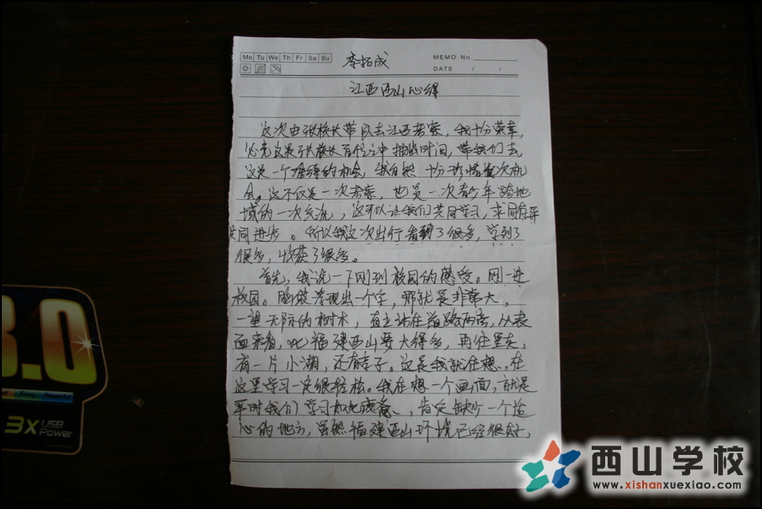 Mo Tu We Th Fr Sa Su
MEMO No.
DATE / /
李拓成
江西西山心得
这次由张校长带队去江西考察，我十分荣幸，
必竟这是张校长百忙之中抽出时间，带我们去，
这是一个难得的机会，我自然十分珍惜这次机
会。这不仅是一次考察，也是一次青少年跨地
域的一次交流，这可以让我们共同学习，求同存异
共同进步。所以我这次出行看到了很多，学到了
很多，收获了很多。
首先，我说一下刚到校园的感受。刚一进
校园。脑筋浮现出一个字，那就是非常大，
一望无际的树木，直立站在道路两旁，从表
面来看，比福建西山要大得多，再往里走，
有一片小湖，还有亭子。这是我就在想，在
这里学习一定很轻松。我在想一个画面，就是
平时我们学习如此疲惫，肯定缺少一个谈
心的地方，虽然福建西山环境已经很好，
3.0
3X
USB
Power
西山学校
www.xishanxuexiao.com